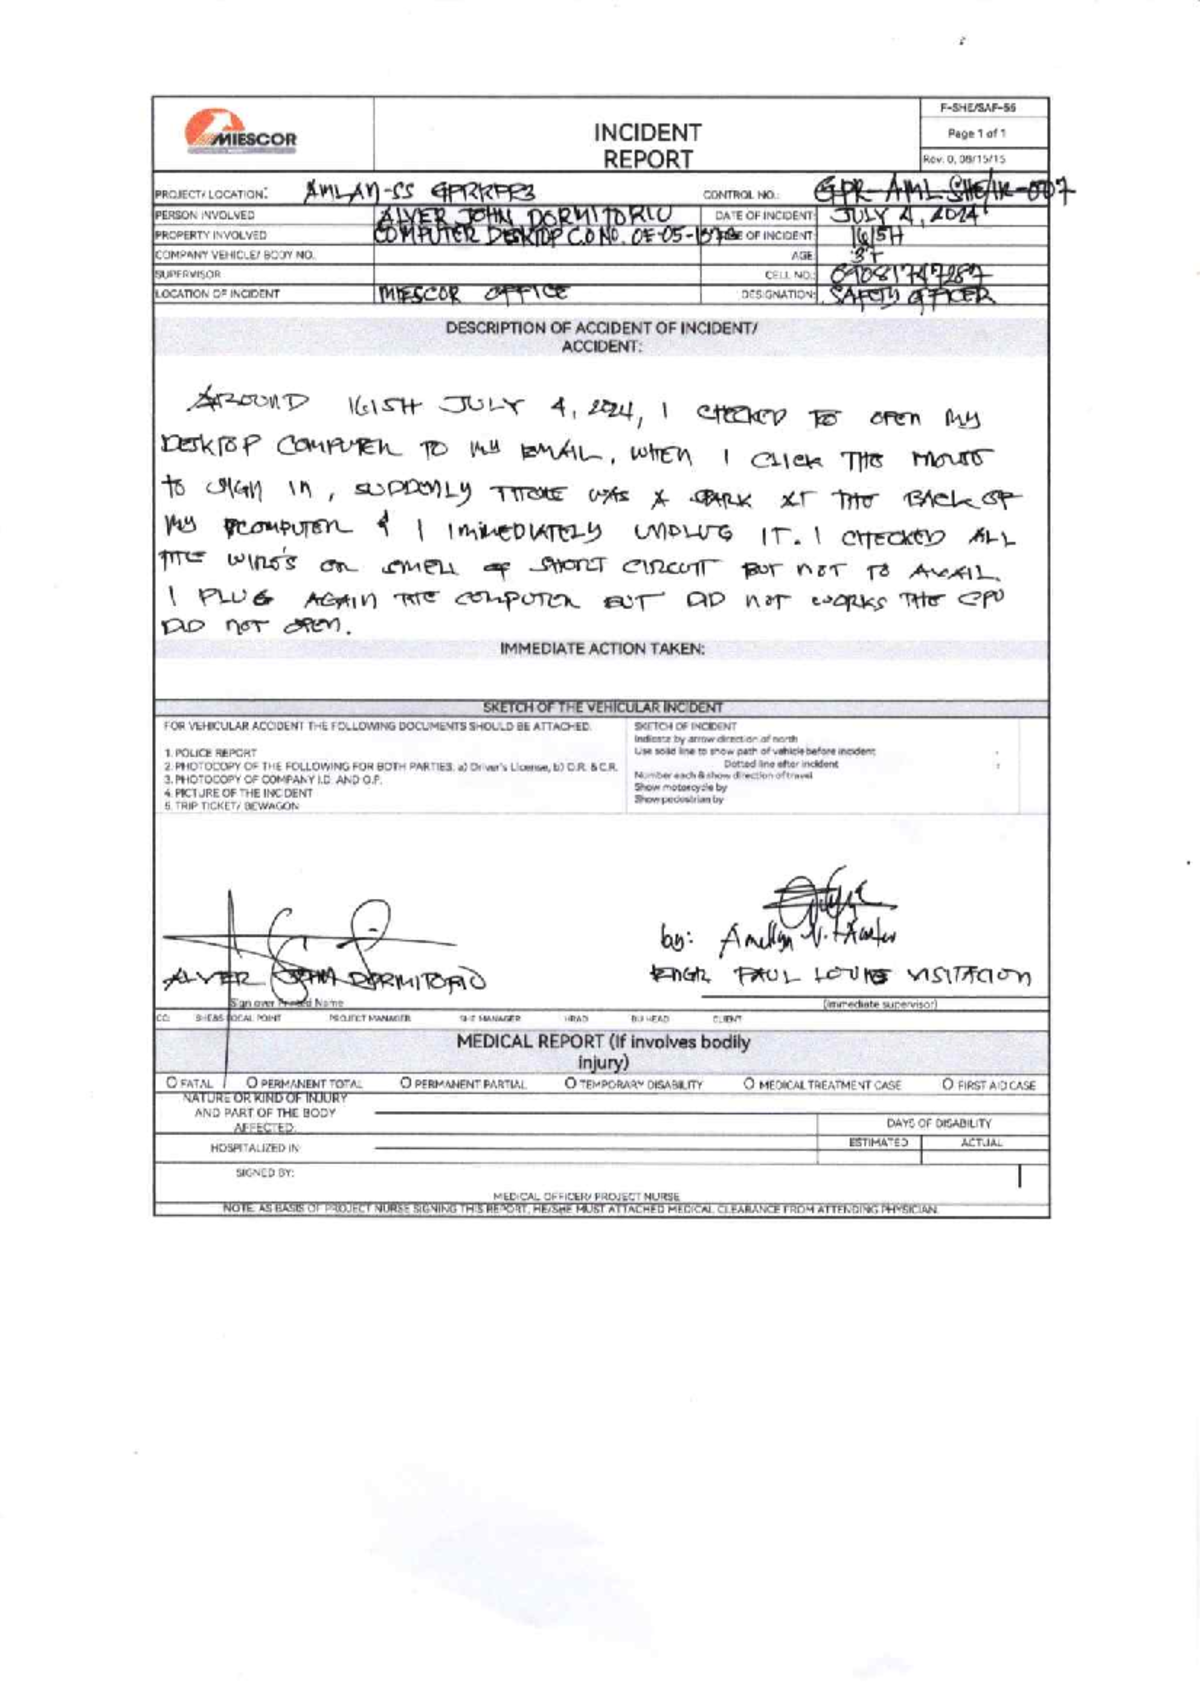 F-SHE/SAF-55
MIESCOR
INCIDENT
REPORT
Page 1 of 1
Rev. 0, 08/15/15
PROJECT/ LOCATION: AMLAN-SS GPRRPP3 CONTROL NO.: GPR-AML-SHE/IR-007
PERSON INVOLVED ALVER JOHN DORMITORIO DATE OF INCIDENT: JULY 4, 2024
PROPERTY INVOLVED COMPUTER DESKTOP C.O NO. OF INCIDENT: 1615H
COMPANY VEHICLE/ BODY NO. AGE
SUPERVISOR CELL NO.:
LOCATION OF INCIDENT MIESCOR OFFICE DESIGNATION: SAFETY OFFICER
DESCRIPTION OF ACCIDENT OF INCIDENT/
ACCIDENT:
AROUND 1615H JULY 4, 2024, I CHECKED TO OPEN MY
DESKTOP COMPUTER TO MY EMAIL, WHEN I CLICK THE MOUSE
TO SIGN IN, SUDDENLY THERE WAS A SPARK AT THE BACK OF
MY COMPUTER & I IMMEDIATELY UNPLUG IT. I CHECKED ALL
THE WIRES OR SMELL OF SHORT CIRCUIT BUT NOT TO AVAIL.
I PLUG AGAIN THE COMPUTER BUT DID NOT WORKS THE CPU
DID NOT OPEN.
IMMEDIATE ACTION TAKEN:
SKETCH OF THE VEHICULAR INCIDENT
FOR VEHICULAR ACCIDENT THE FOLLOWING DOCUMENTS SHOULD BE ATTACHED.
1. POLICE REPORT
2. PHOTOCOPY OF THE FOLLOWING FOR BOTH PARTIES. a) Driver's License, b) O.R. & C.R.
3. PHOTOCOPY OF COMPANY I.D. AND O.P.
4. PICTURE OF THE INCIDENT
5. TRIP TICKET/ BEWAGON
SKETCH OF INCIDENT
Indicate by arrow direction of north
Use solid line to show path of vehicle before incident
Dotted line after incident
Number each & show direction of travel
Show motorcycle by
Show pedestrian by
by: Amellyn V.
ALVER JOHN DORMITORIO ENGR. PAUL LOUIE VISITACION
Sign over Printed Name (immediate supervisor)
CC: SHE&S FOCAL POINT PROJECT MANAGER SHE MANAGER HRAD BU HEAD CLIENT
MEDICAL REPORT (If involves bodily
injury)
O FATAL O PERMANENT TOTAL O PERMANENT PARTIAL O TEMPORARY DISABILITY O MEDICAL TREATMENT CASE O FIRST AID CASE
NATURE OR KIND OF INJURY
AND PART OF THE BODY
AFFECTED:
DAYS OF DISABILITY
HOSPITALIZED IN: ESTIMATED ACTUAL
SIGNED BY:
MEDICAL OFFICER/ PROJECT NURSE
NOTE: AS BASIS OF PROJECT NURSE SIGNING THIS REPORT, HE/SHE MUST ATTACHED MEDICAL CLEARANCE FROM ATTENDING PHYSICIAN.